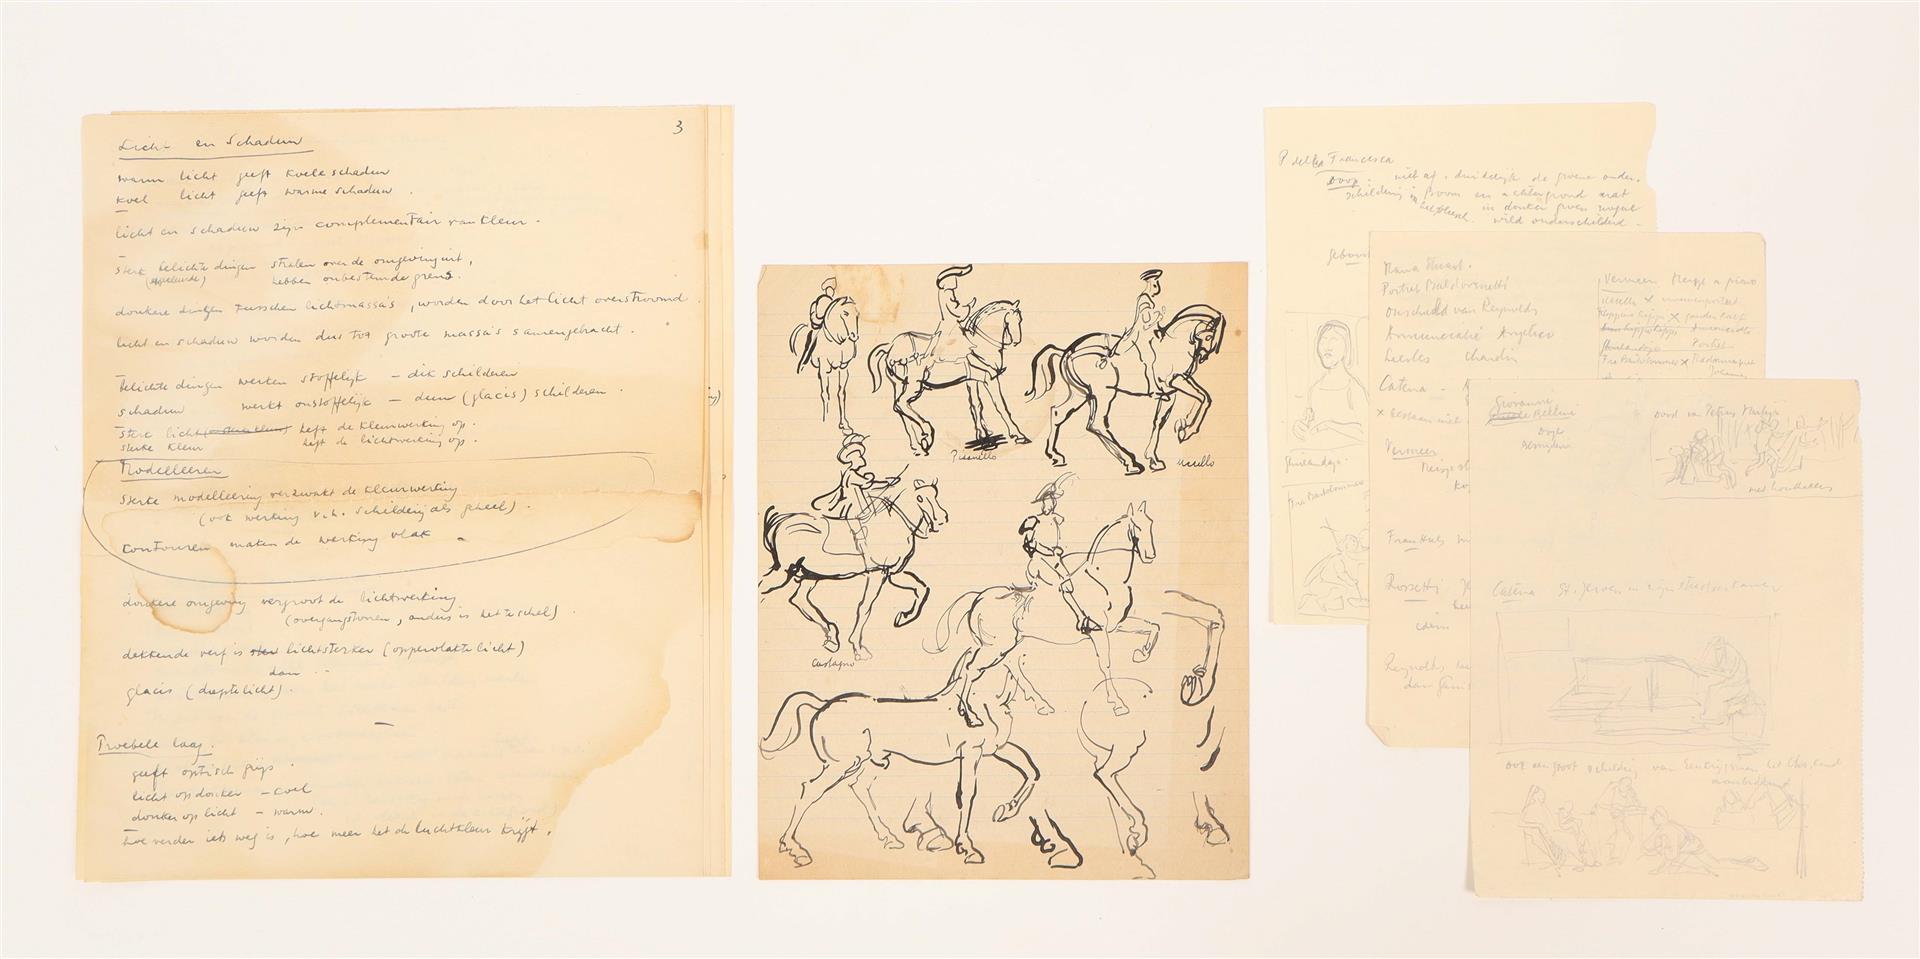 3
Licht en Schaduw
warm licht geeft koele schaduw
koel licht geeft warme schaduw.
licht en schaduw zijn complementair van kleur.
sterk belichte dingen stralen over de omgeving uit,
hebben onbestemde grens.
donkere dingen tusschen lichtmassa's, worden door het licht overstroomd.
licht en schaduw worden dus tot groote massa's samengebracht.
belichte dingen werken stoffelijk - dik schilderen
schaduw werkt onstoffelijk - dun (glacis) schilderen.
sterk licht heft de kleurwerking op.
sterke kleur heft de lichtwerking op.
Modelleeren
sterke modelleering verzwakt de kleurwerking
(ook werking v.h. schilderij als geheel).
contouren maken de werking vlak
donkere omgeving vergroot de lichtwerking
(overgangstonen, anders is het te schel).
dekkende verf is lichtsterker (oppervlakte licht)
dan
glacis (diepte licht).
Troebele laag.
geeft optisch grijs.
licht op donker - koel
donker op licht - warm.
hoe verder iets weg is, hoe meer het de luchtkleur krijgt.
Pisanello
Uccello
Castagno
P della Francesca
Doop: niet af. duidelijk de groene onder-
schildering in boom en achtergrond wat
in donker groen
wild onderschilderd
Ghirlandajo
Fra Bartolommeo
Maria Stuart.
Portret Baldovinetti
Onschuld van Reynolds
Annunciatie Angelico
Chardin
Catena -
x bestaan niet
Vermeer
Meisje
Frans Hals
Rossetti
idem
Reynolds
Vermeer Meisje a piano
x vrouwenportret
Portret
Fra Bartolommeo x
Giovanni
Bellini
Doge
dood van Petrus Martyr
met houthakkers
Catena St. Jeroen in zijn studeerkamer
ook een groot schilderij van een krijgsman het Chr. kind
aanbiddend